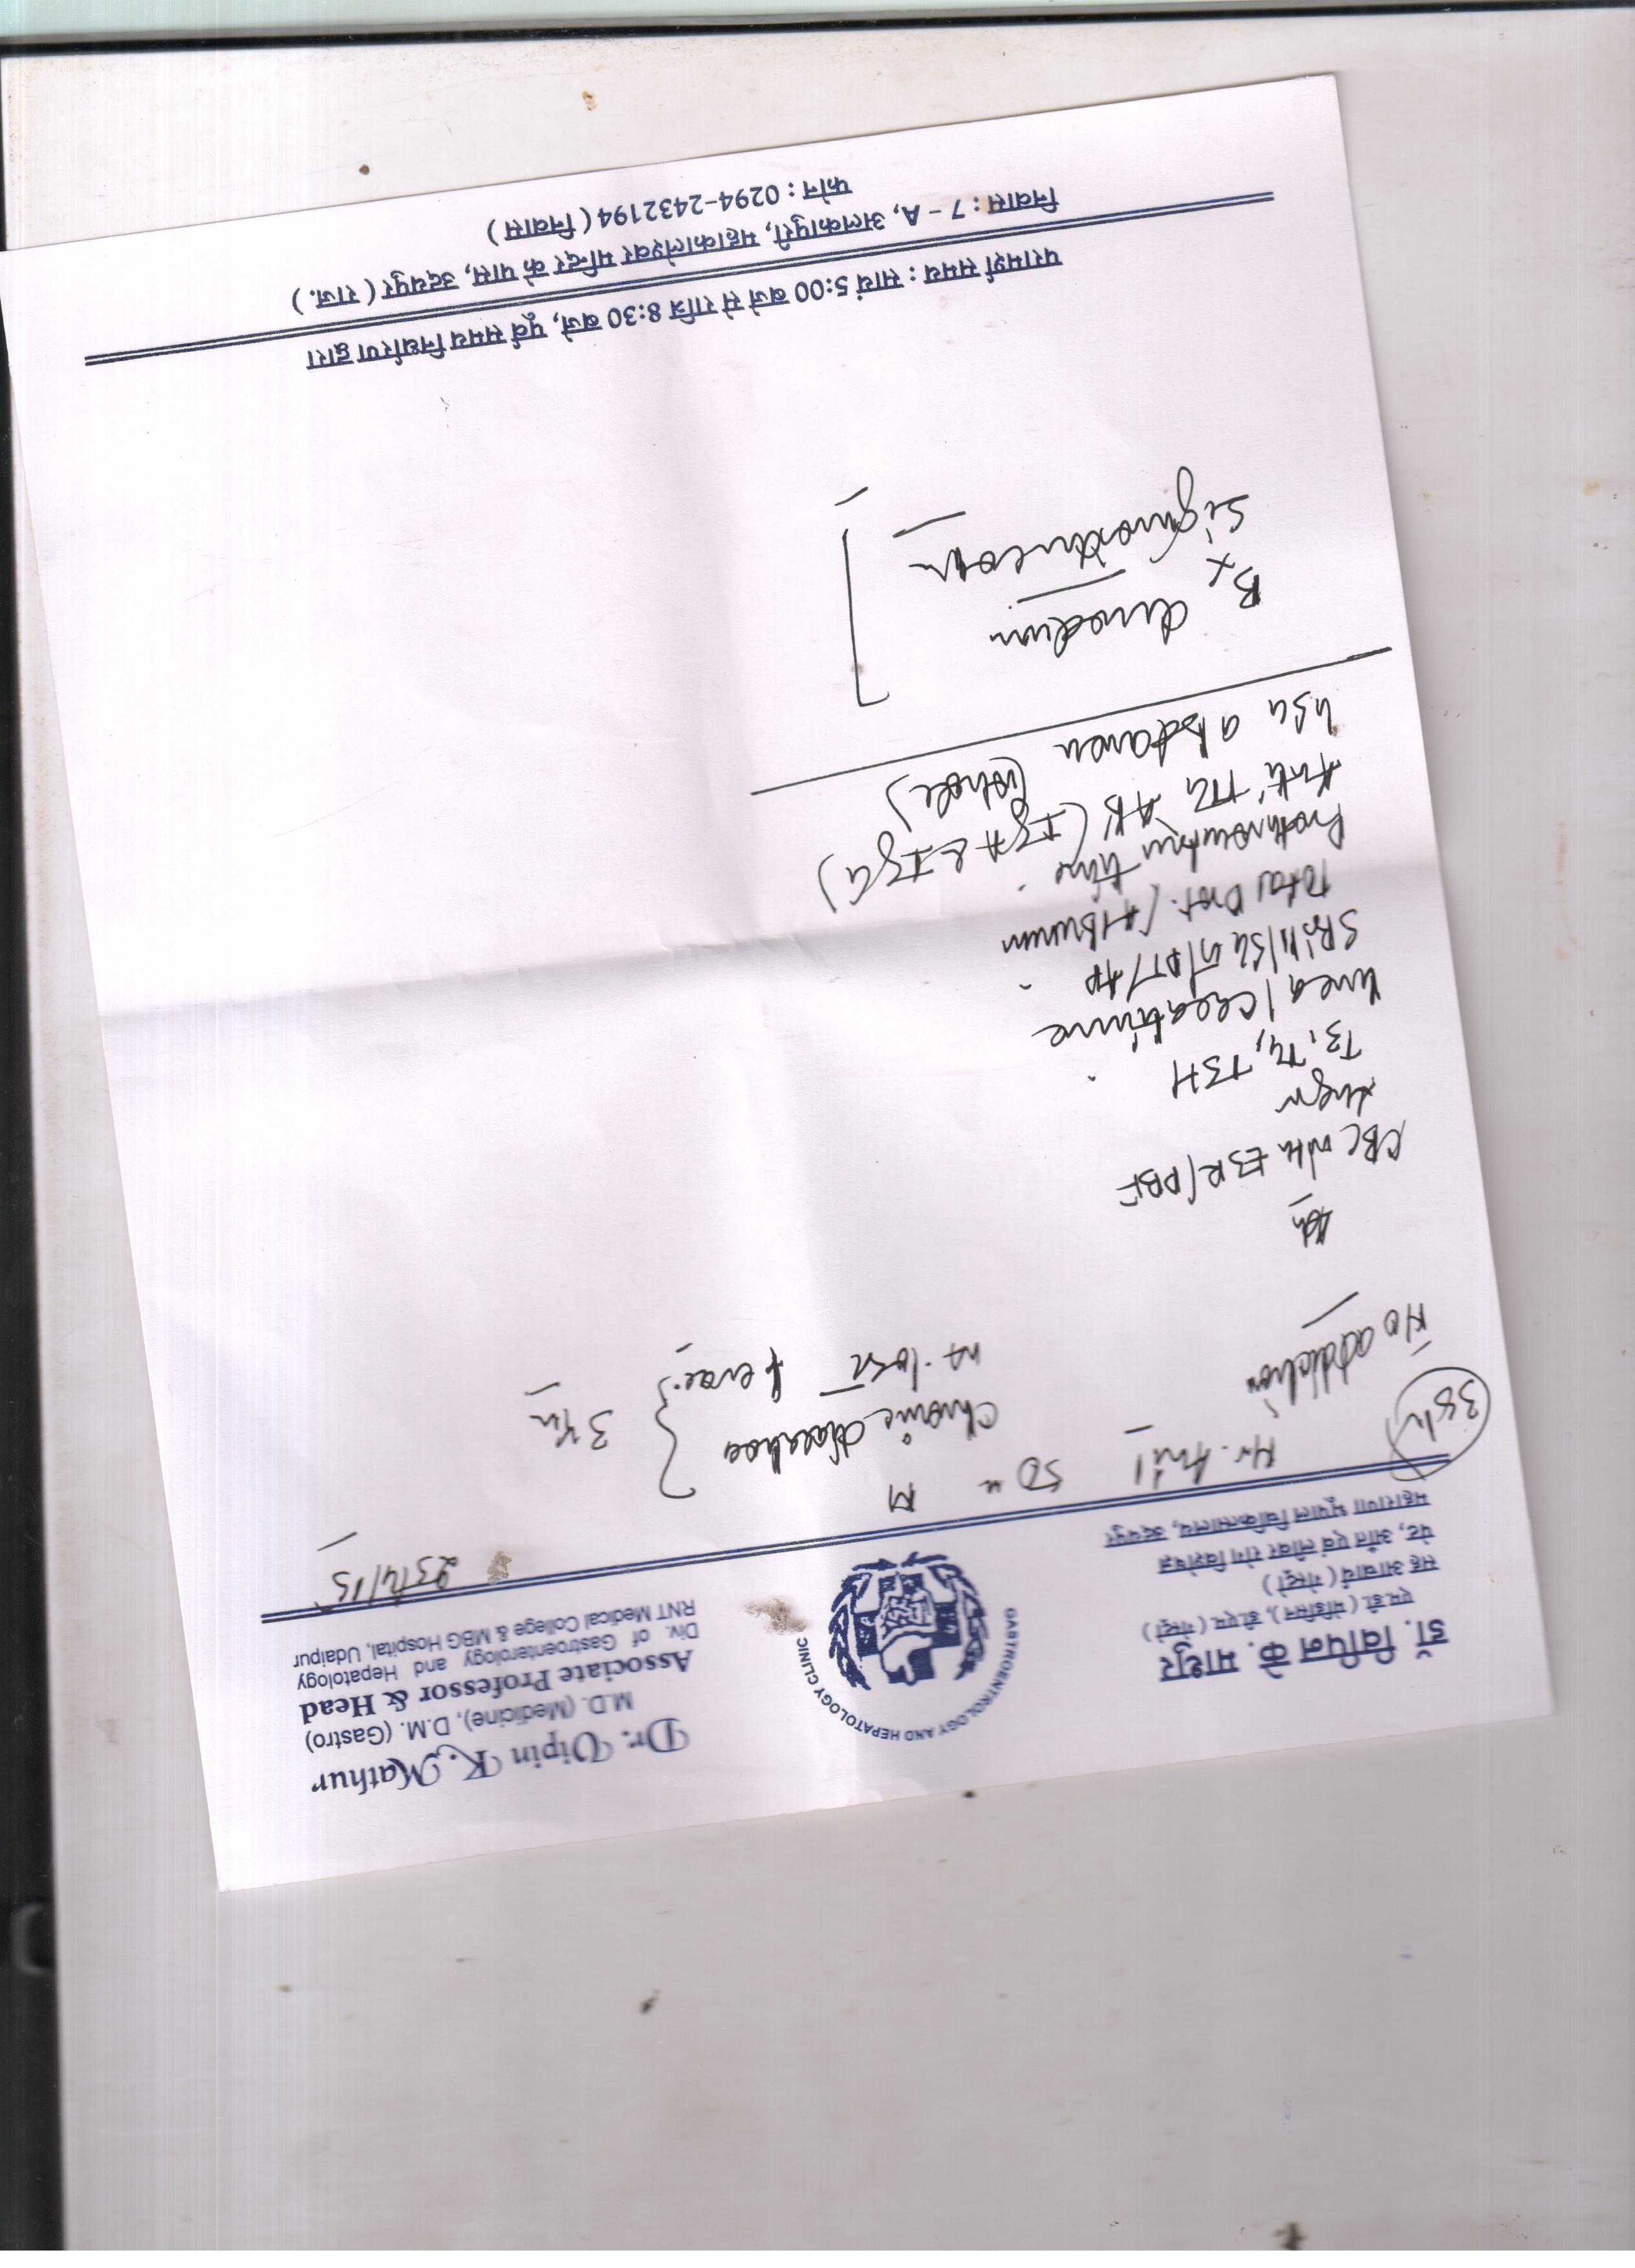 डॉ. विपिन के. माथुर
एम.डी. (मेडिसिन), डी.एम. (गेस्ट्रो)
सह आचार्य (गेस्ट्रो)
पेट, आँत एवं लीवर रोग विशेषज्ञ
महाराणा भूपाल चिकित्सालय, उदयपुर
GASTROENTROLOGY AND HEPATOLOGY CLINIC
Dr. Vipin K. Mathur
M.D. (Medicine), D.M. (Gastro)
Associate Professor & Head
Div. of Gastroenterology and Hepatology
RNT Medical College & MBG Hospital, Udaipur
23/4/15
Mr. Anil 50 M
38
Chronic diarrhoea
wt. loss
3 yr
No addiction
CBC with ESR/PBF
T3, T4, TSH
Urea/Creatinine
SBil/SG OT/PT/AP
Total Prot./Albumin
Prothrombin time
Anti TTG AB (IgA & IgG)
USG abdomen (whole)
Bx duodenum
Sigmoid colon
परामर्श समय : सायं 5:00 बजे से रात्रि 8:30 बजे, पूर्व समय निर्धारण द्वारा
निवास : 7 - A, अलकापुरी, महाकालेश्वर मन्दिर के पास, उदयपुर ( राज. )
फोन : 0294-2432194 ( निवास )